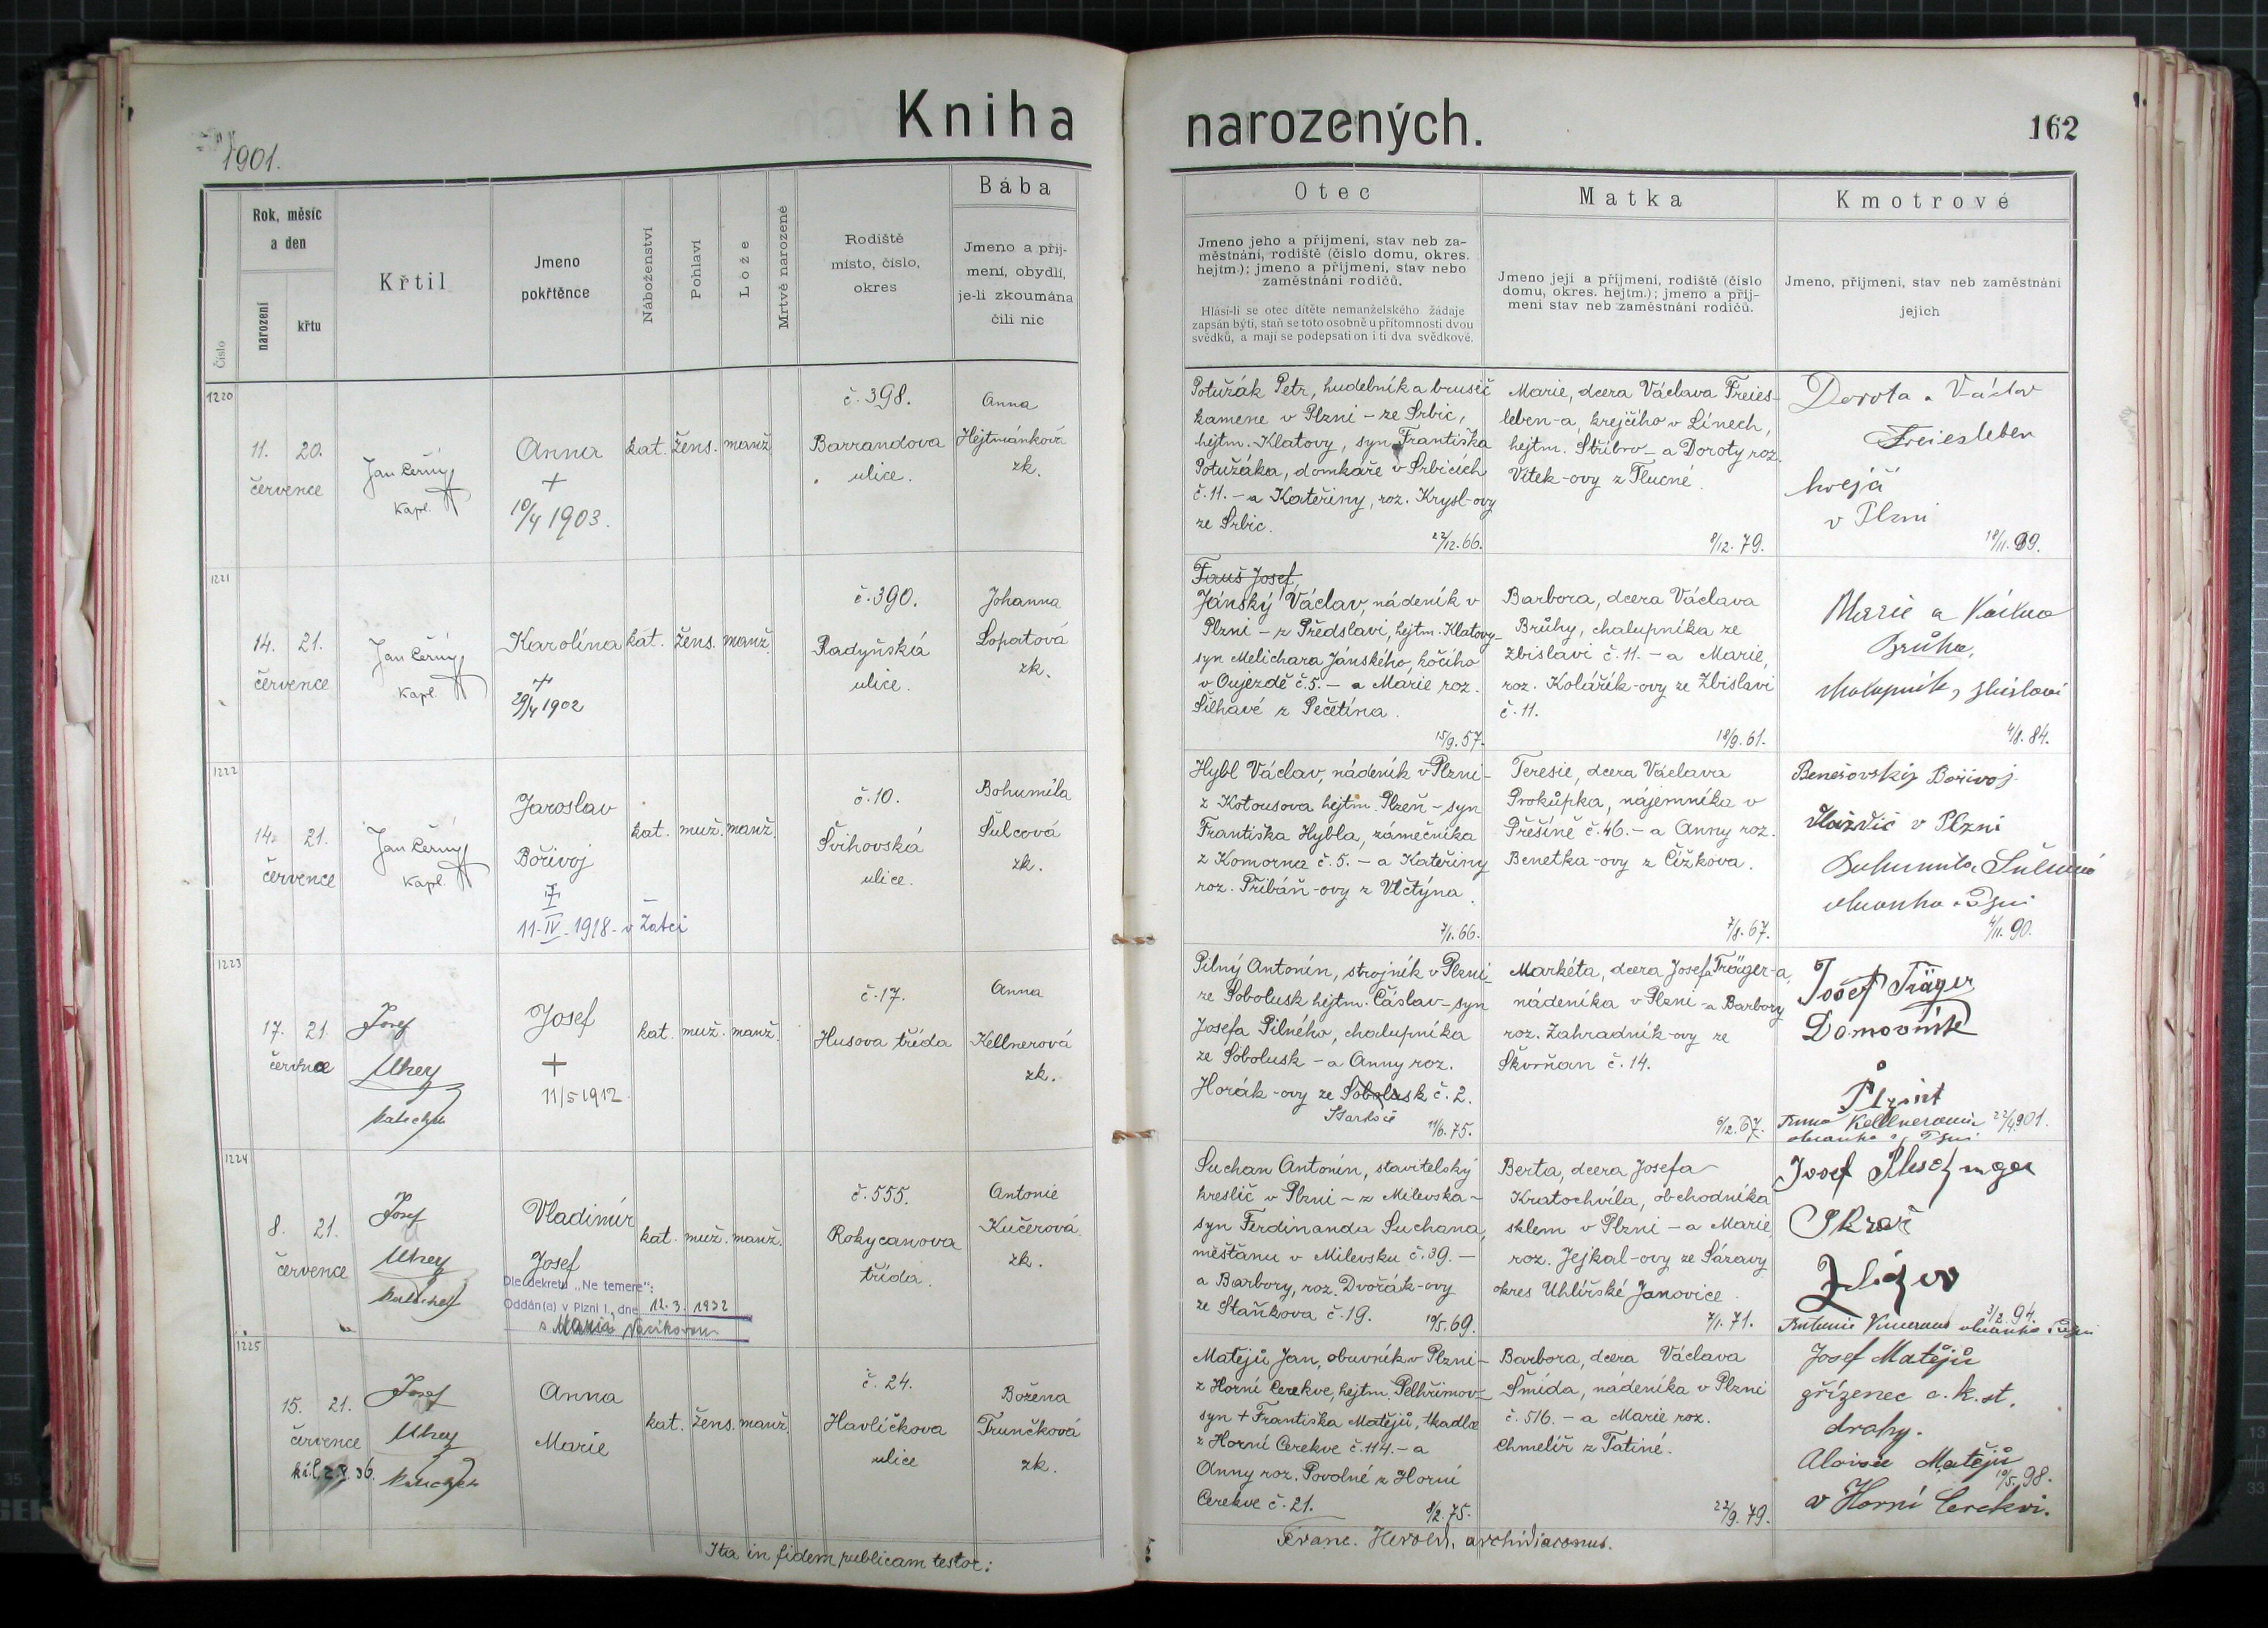 Kniha narozených.
162
1901.
Číslo
Rok, měsíc
a den
narození
křtu
Křtil
Jmeno
pokřtěnce
Náboženství
Pohlaví
Lože
Mrtvě narozené
Rodiště
místo, číslo,
okres
Bába
Jmeno a příj-
mení, obydlí,
je-li zkoumána
čili nic
Otec
Jmeno jeho a příjmení, stav neb za-
městnání, rodiště (číslo domu, okres.
hejtm.); jmeno a příjmení, stav nebo
zaměstnání rodičů.
Hlásí-li se otec dítěte nemanželského žádaje
zapsán býti, staň se toto osobně u přítomnosti dvou
svědků, a mají se podepsati on i ti dva svědkové.
Matka
Jmeno její a příjmení, rodiště (číslo
domu, okres. hejtm.); jmeno a příj-
mení stav neb zaměstnání rodičů.
Kmotrové
Jmeno, příjmení, stav neb zaměstnání
jejich
1220
11. 20.
července
Jan Černý
kapl.
Anna
+
10/4 1903.
kat. žens. manž.
č. 398.
Barrandova
ulice.
Anna
Hejtmánková
zk.
Potužák Petr, hudebník a brusič
kamene v Plzni – ze Srbic,
hejtm. Klatovy, syn Františka
Potužáka, domkáře v Srbicích
č. 11. – a Kateřiny, roz. Krysl-ovy
ze Srbic.
22/12. 66.
Marie, dcera Václava Freies-
leben-a, krejčího v Línech,
hejtm. Stříbro – a Doroty roz.
Vítek-ovy z Tlucné.
8/12. 79.
Dorota a Václav
Freiesleben
krejčí
v Plzni
18/11. 99.
1221
14. 21.
července
Jan Černý
kapl.
Karolína
+
29/4 1902
kat. žens. manž.
č. 390.
Radyňská
ulice.
Johanna
Lopatová
zk.
Fauš Josef
Jánský Václav, nádeník v
Plzni – z Předslavi, hejtm. Klatovy –
syn Melichara Jánského, kočího
v Oujezdě č. 5. – a Marie roz.
Šilhavé z Pečetína.
15/9. 57.
Barbora, dcera Václava
Brůhy, chalupníka ze
Zbislavi č. 11. – a Marie,
roz. Kolářík-ovy ze Zbislavi
č. 11.
18/9. 61.
Marie a Václav
Brůha,
chalupník, Zbislavi
4/8. 84.
1222
14. 21.
července
Jan Černý
kapl.
Jaroslav
Bořivoj
11-IV-1918 - v Žatci
kat. muž. manž.
č. 10.
Švihovská
ulice.
Bohumila
Šulcová
zk.
Hybl Václav, nádeník v Plzni –
z Kotousova hejtm. Plzeň – syn
Františka Hybla, zámečníka
z Komorna č. 5. – a Kateřiny
roz. Přibáň-ovy z Vlčtýna.
7/1. 66.
Teresie, dcera Václava
Prokůpka, nájemníka v
Přešíně č. 46. – a Anny roz.
Benetka-ovy z Čížkova.
7/8. 67.
Benešovský Bořivoj
dlaždič v Plzni
Bohumila Šulcová
4/11. 90.
1223
17. 21.
července
Josef
katecheta
Josef
+
11/5 1912.
kat. muž. manž.
č. 17.
Husova třída
Anna
Kellnerová
zk.
Pilný Antonín, strojník v Plzni –
ze Sobolusk hejtm. Čáslav – syn
Josefa Pilného, chalupníka
ze Sobolusk – a Anny roz.
Horák-ovy ze Sobolusk č. 2.
11/6. 75.
Markéta, dcera Josefa Träger-a,
nádeníka v Plzni – a Barbory
roz. Zahradník-ovy ze
Skvrňan č. 14.
6/12. 67.
Josef Träger
Domovník
Anna Kellnerová 22/4 901.
1224
8. 21.
července
Josef
katecheta
Vladimír
Josef
Dle dekretu „Ne temere“:
Oddán(a) v Plzni I., dne 12. 3. 1932
s Marií
kat. muž. manž.
č. 555.
Rokycanova
třída.
Antonie
Kučerová
zk.
Suchan Antonín, stavitelský
kreslič v Plzni – z Milevska –
syn Ferdinanda Suchana,
měšťanu v Milevsku č. 39. –
a Barbory, roz. Dvořák-ovy
ze Staňkova č. 19.
10/5. 69.
Berta, dcera Josefa
Kratochvíla, obchodníka
sklem v Plzni – a Marie,
roz. Jejkal-ovy ze Sázavy
okres Uhlířské Janovice.
7/1. 71.
Josef
3/2. 94.
1225
15. 21.
července
Josef
katecheta
Anna
Marie
kat. žens. manž.
č. 24.
Havlíčkova
ulice
Božena
Trunčková
zk.
Matějů Jan, obuvník v Plzni –
z Horní Cerekve, hejtm. Pelhřimov –
syn + Františka Matějů, tkadlce
z Horní Cerekve č. 114. – a
Anny roz. Povolné z Horní
Cerekve č. 21.
8/2. 75.
Barbora, dcera Václava
Šmída, nádeníka v Plzni
č. 516. – a Marie roz.
Chmelíř z Tatiné.
22/9. 79.
Josef Matějů
zřízenec c. k. st.
dráhy.
Aloisie Matějů
10/5. 98.
v Horní Cerekvi.
Ita in fidem publicam testor:
Franc. Herold, archidiaconus.